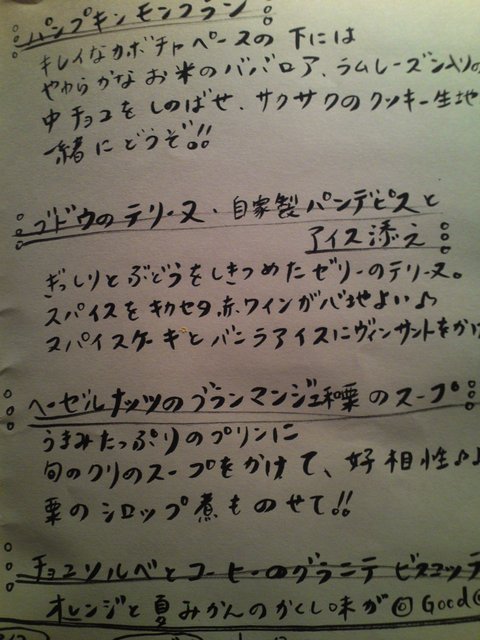 パンプキンモンブラン
キレイなカボチャペースの下には
やわらかなお米のババロア、ラムレーズン入りの
中チョコをしのばせ、サクサクのクッキー生地
一緒にどうぞ!!
ブドウのテリーヌ・自家製パンデピスと
アイス添え
ぎっしりとぶどうをしきつめたゼリーのテリーヌ。
スパイスをキカセタ赤ワインが心地よい♪
スパイスケーキとバニラアイスにヴィンサントをかけ
ヘーゼルナッツのブランマンジェ和栗のスープ
うまみたっぷりのプリンに
旬のクリのスープをかけて、好相性♪♪
栗のシロップ煮ものせて!!
チョコソルベとコーヒーのグラニテ ビスコッテ
オレンジと夏みかんのかくし味が◎Good◎